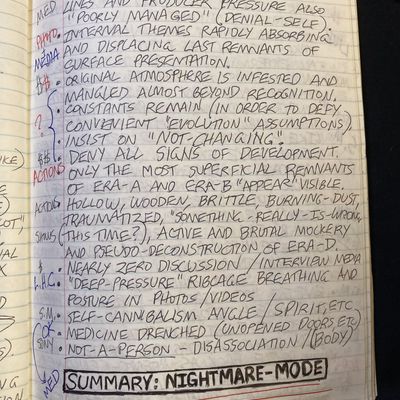 MED LINES AND PRODUCER PRESSURE ALSO
"POORLY MANAGED" (DENIAL-SELF).
PHOTO • INTERNAL THEMES RAPIDLY ABSORBING
MEDIA AND DISPLACING LAST REMNANTS OF
SURFACE PRESENTATION.
$$ • ORIGINAL ATMOSPHERE IS INFESTED AND
MANGLED ALMOST BEYOND RECOGNITION.
• CONSTANTS REMAIN (IN ORDER TO DEFY
? CONVENIENT "EVOLUTION" ASSUMPTIONS)
• INSIST ON "NOT-CHANGING".
$$ • DENY ALL SIGNS OF DEVELOPMENT.
ACTIONS • ONLY THE MOST SUPERFICIAL REMNANTS
OF ERA-A AND ERA-B "APPEAR" VISIBLE.
ACTIONS • HOLLOW, WOODEN, BRITTLE, BURNING-DUST,
TRAUMATIZED, "SOMETHING-REALLY-IS-WRONG,
(THIS TIME?), ACTIVE AND BRUTAL MOCKERY
AND PSEUDO-DECONSTRUCTION OF ERA-D.
$ • NEARLY ZERO DISCUSSION / INTERVIEW MEDIA
L.A.C. • "DEEP-PRESSURE" RIBCAGE BREATHING AND
POSTURE IN PHOTOS/VIDEOS
S.M. • SELF-CANNIBALISM ANGLE / SPIRIT, ETC
(OR • MEDICINE DRENCHED (UNOPENED DOORS ETC)
SONY • NOT-A-PERSON - DISASSOCIATION / (BODY)
MED
SUMMARY: NIGHTMARE-MODE